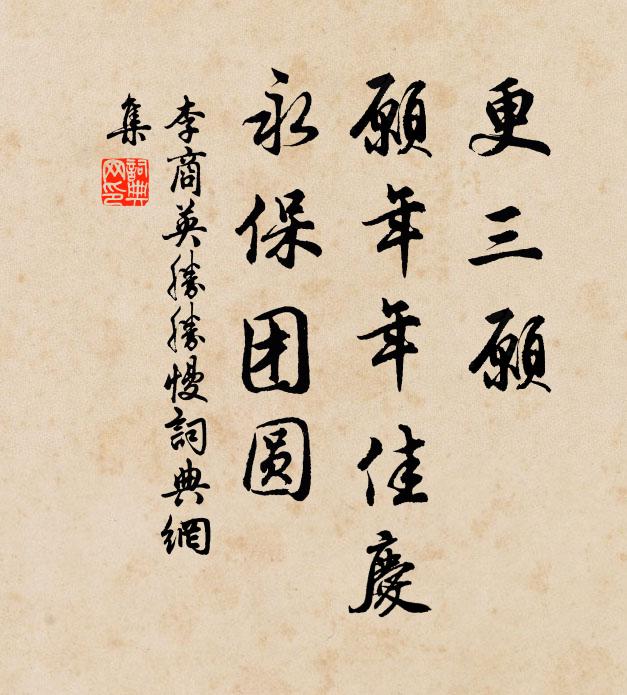 更三願
願年年佳慶
永保团圆
李商英勝勝慢詞典網
集
詞典
网印